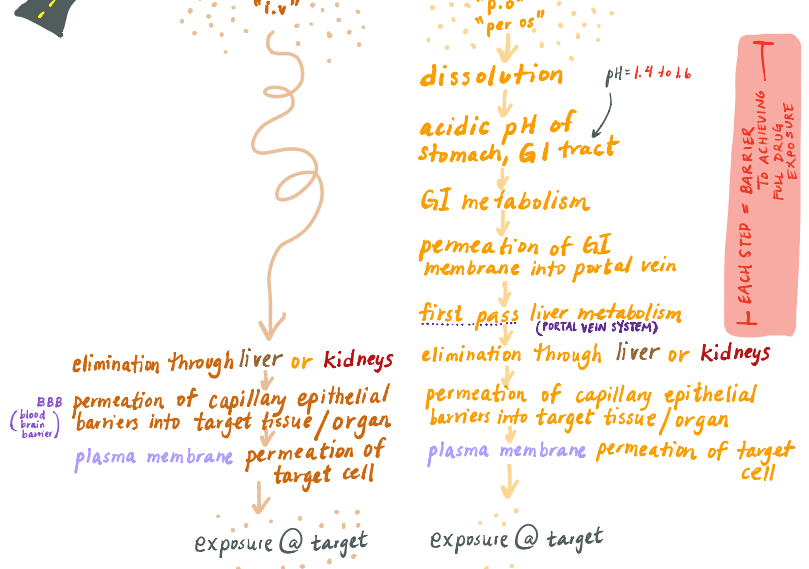 "i.v"
elimination through liver or kidneys
BBB
(blood
brain
barrier)
permeation of capillary epithelial
barriers into target tissue/organ
plasma membrane permeation of
target cell
exposure @ target
"p.o"
"per os"
dissolution
pH = 1.4 to 1.6
acidic pH of
stomach, GI tract
GI metabolism
permeation of GI
membrane into portal vein
first pass liver metabolism
(PORTAL VEIN SYSTEM)
elimination through liver or kidneys
permeation of capillary epithelial
barriers into target tissue/organ
plasma membrane permeation of target
cell
exposure @ target
EACH STEP = BARRIER
TO ACHIEVING
FULL DRUG
EXPOSURE